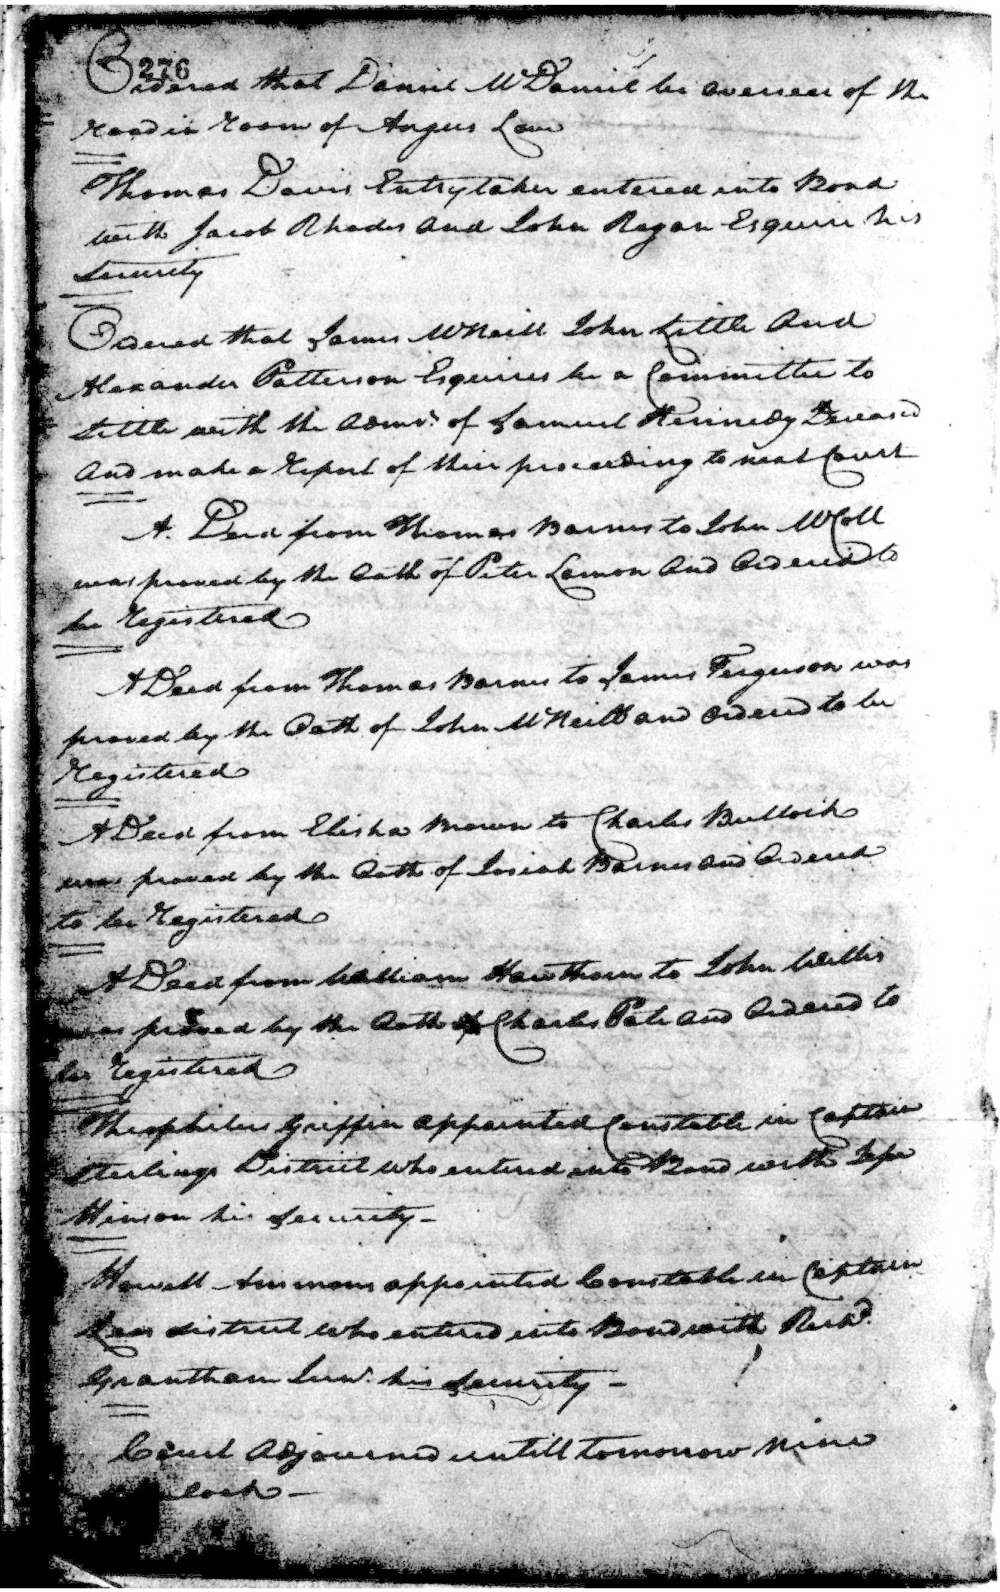 276
Ordered that Daniel McDaniel be overseer of the
road in Room of Angus Law
Thomas Davis Entrytaker entered into Bond
with Jacob Rhodes and John Regan Esquire his
Security
Ordered that James McNeill John Little And
Alexander Patterson Esquires be a Committee to
Settle with the Admr. of Samuel Kennedy Deceased
And make a Report of their proceeding to next Court
A Deed from Thomas Barnes to John McColl
was proved by the Oath of Peter Lamon And Ordered to
be Registered
A Deed from Thomas Barnes to James Ferguson was
proved by the Oath of John McNeill and ordered to be
Registered
A Deed from Elisha Brown to Charles Bullock
was proved by the Oath of Josiah Barnes And Ordered
to be Registered
A Deed from William Hawthorn to John Willis
was proved by the Oath of Charles Pate And Ordered to
be Registered
Theophilus Griffin appointed Constable in Captain
Sterlings District who entered into Bond with
Hinson his Security -
Howell Ammons appointed Constable in Captain
Lees district who entered into Bond with Richd.
Grantham Junr. his Security -
Court Adjourned untill tomorrow nine
Clock -